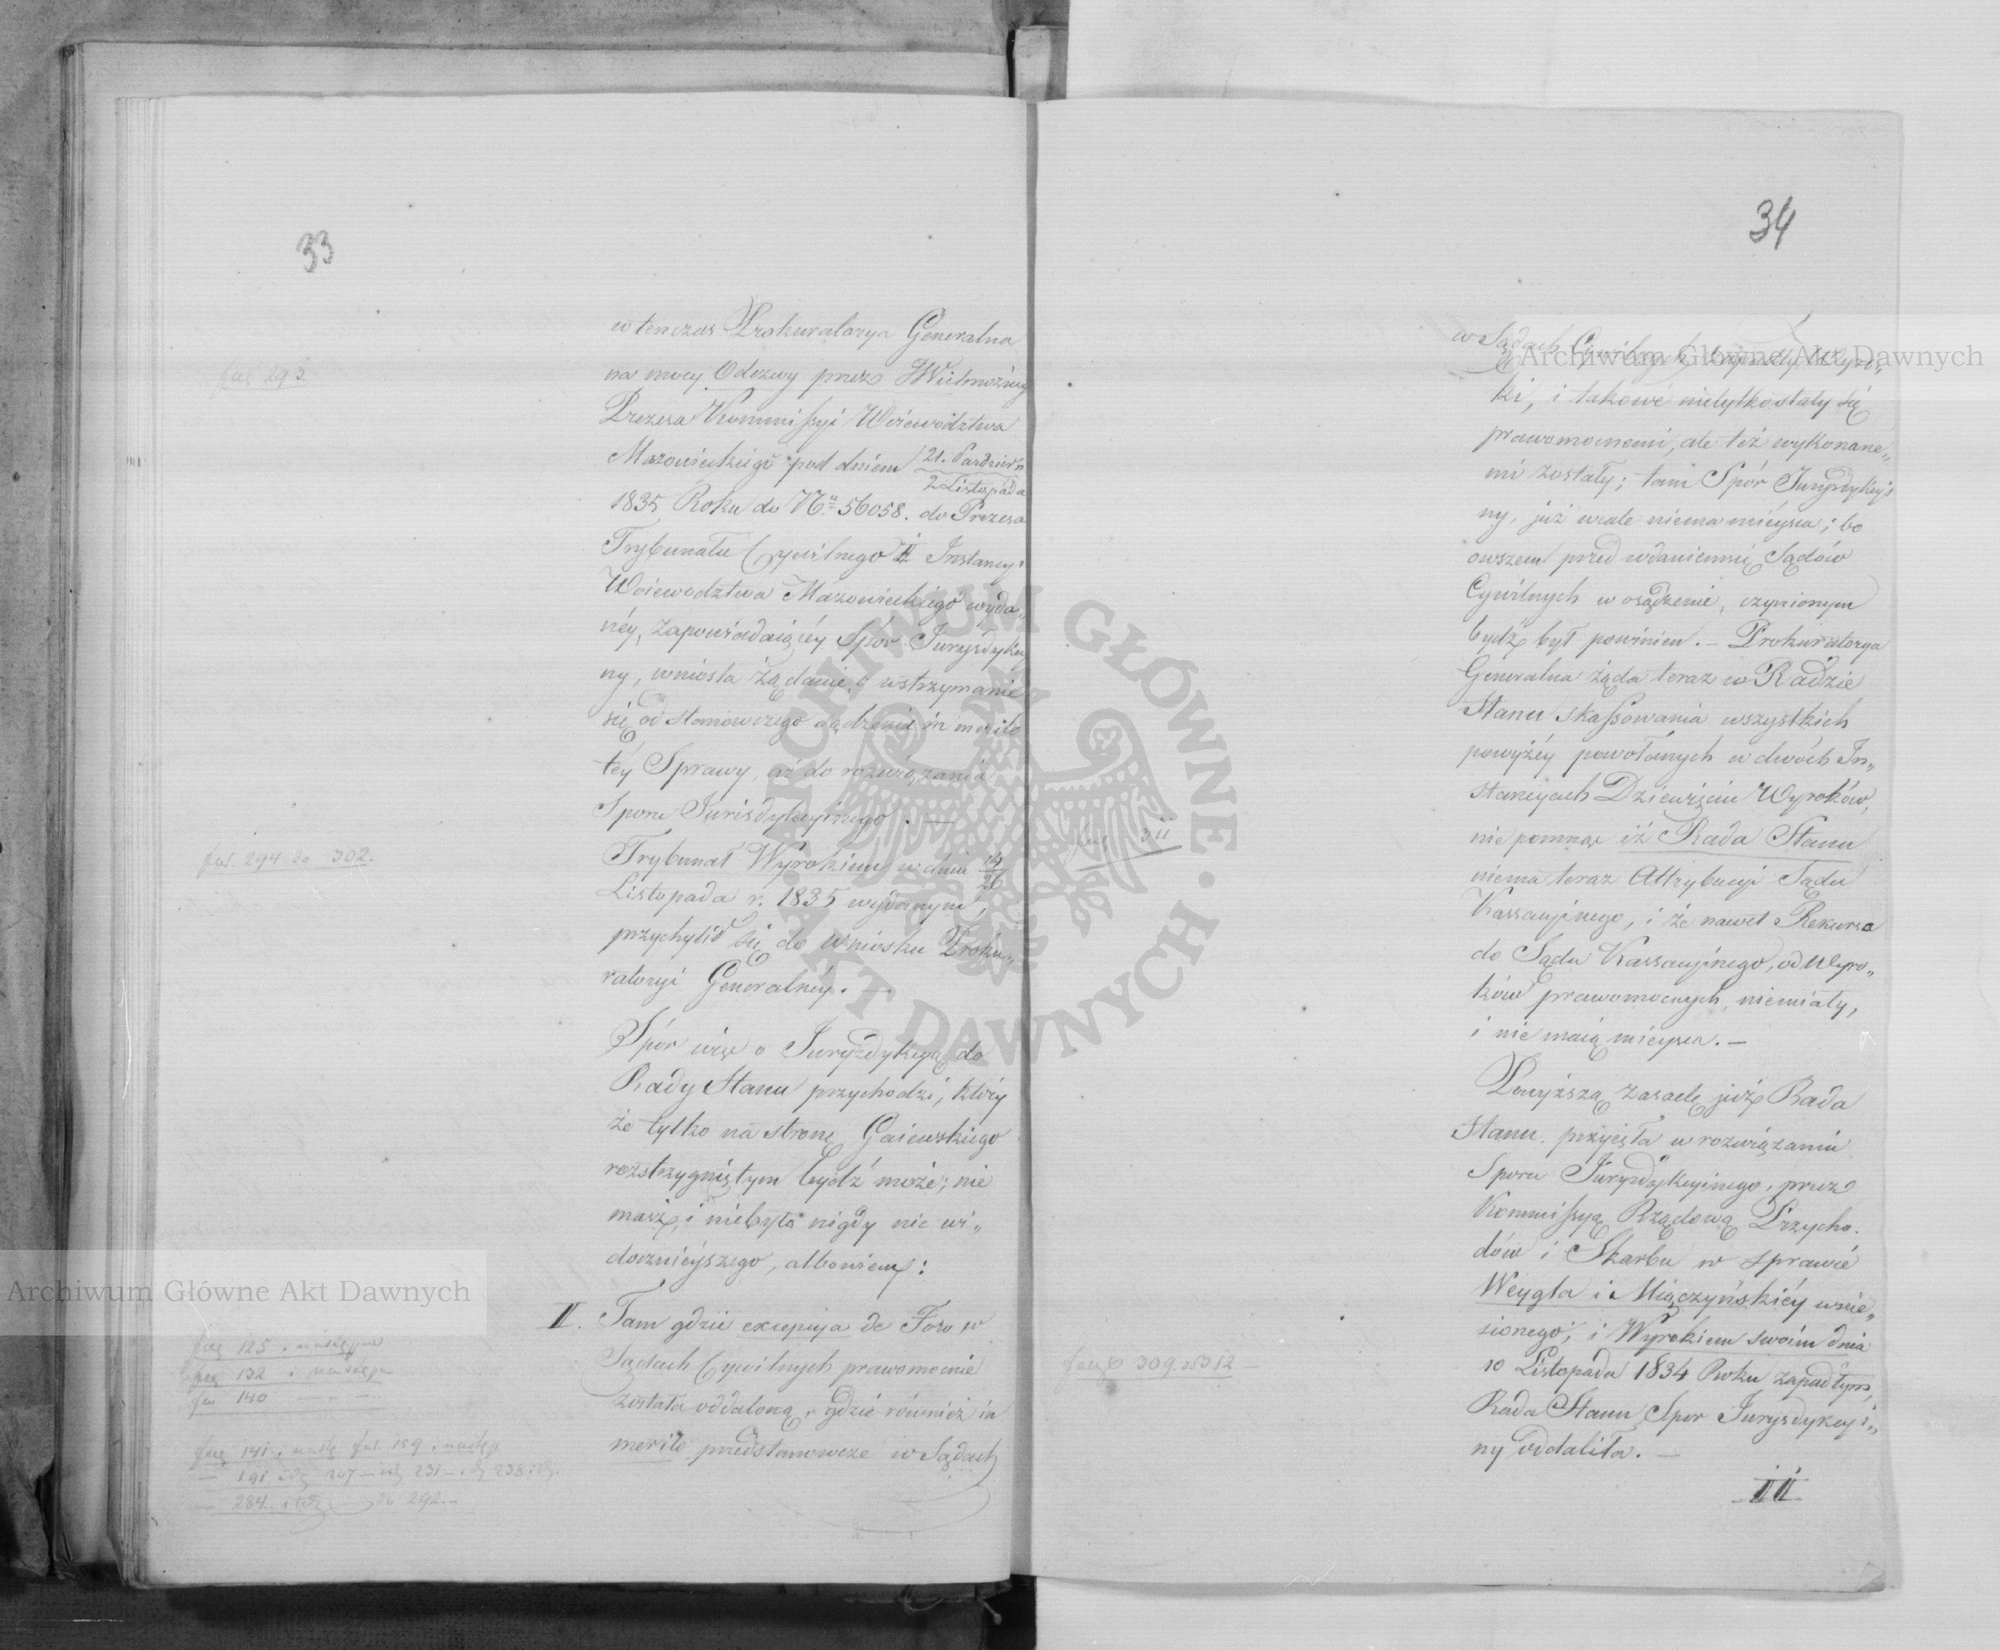 33
fac 293.
wtenczas Prokuratorya Generalna
na mocy Odezwy przez JWielmożnego
Prezesa Kommissyi Woiewodztwa
Mazowieckiego pod dniem 21. Paździer.
2 Listopada
1835 Roku do N. 56058. do Prezesa
Trybunału Cywilnego Instancyi
Woiewodztwa Mazowieckiego wyda„
néy, zapowiadaiącéy Spór Jurysdykcy
ny, wniosła żądanie, o wstrzymanie
się od stanowczego sądzenia in merito
téy Sprawy, aż do rozwiązania
Sporu Jurisdykcyinego. —
fac. 294 do 302.
Trybunał Wyrokiem w dniu 14/26
Listopada r. 1835 wydanym,
przychylił się do wniosku Proku„
ratoryi Generalnéy. —
Spór więc o Juryzdykcyą do
Rady Stanu przychodzi, który
że tylko na stronę Gaiewskiego
rozstrzygniętym bydź może; nie
masz, i niebyło nigdy nic wi„
docznieyszego, albowiem:
II. Tam gdzie excepcya de Foro w
Sądach Cywilnych prawomocnie
została oddaloną, gdzie również in
merito przedstanowcze w Sądach
fac 125 i następne
fac 132 i następn
fac 140 — — —
fac 141 i nastę. fac. 159 i następ.
— 191 itd 207 — itd 231 — itd 238 itd.
— 284 itd — do 292. —
34
w Sądach Cywilnych zapadły Wyro„
ki, i takowe nietylko stały się
prawomocnemi, ale też wykonane„
mi zostały; tam Spór Jurysdykcyi
ny, już wcale niema mieysca; bo
owszem przed wdaniem się Sądów
Cywilnych w osądzenie, czynionym
bydź był powinien. — Prokuratorya
Generalna żąda teraz w Radzie
Stanu skassowania wszystkich
powyżéy powołanych w dwóch In„
stancyach Dziewięciu Wyroków,
nie pomnąc iż Rada Stanu
niema teraz Attrybucyi Sądu
Kassacyinego, i że nawet Rekursa
do Sądu Kassacyinego, od Wyro„
ków prawomocnych, niemiały,
i nie maią mieysca. —
fac 311
Powyższą zasadę już Rada
Stanu przyięła w rozwiązaniu
Sporu Juryzdykcyinego, przez
Kommissyą Rządową Przycho.
dów i Skarbu w sprawie
Weygla i Miączyńskiéy wnie„
sionego; i Wyrokiem swoim dnia
10 Listopada 1834 Roku zapadłym,
Rada Stanu Spor Jurysdykcyi„
ny oddaliła. —
fac 309 do 312 —
III
Archiwum Główne Akt Dawnych
Archiwum Główne Akt Dawnych
ARCHIWUM GŁÓWNE AKT DAWNYCH